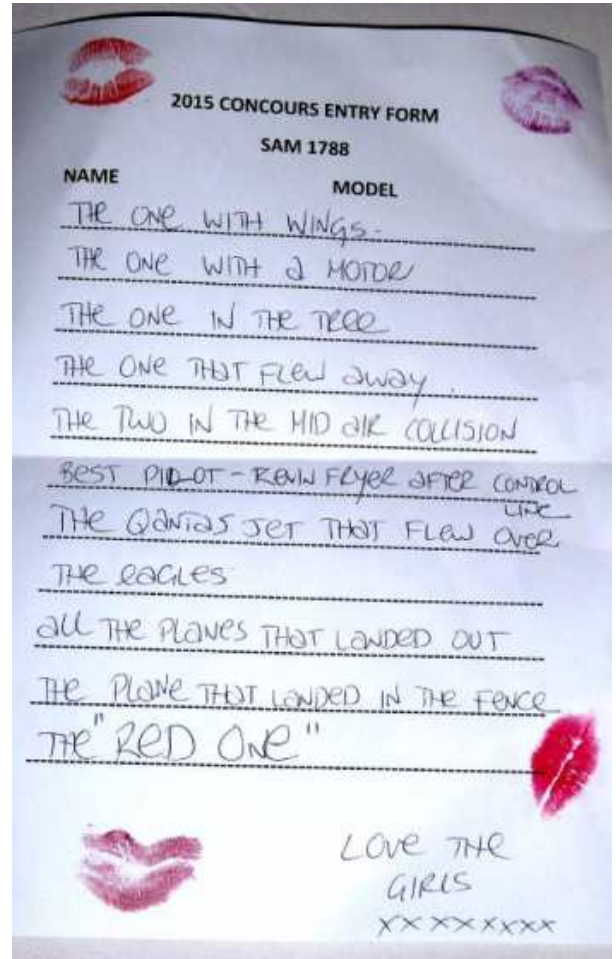 2015 CONCOURS ENTRY FORM
SAM 1788
NAME MODEL
THE ONE WITH WINGS.
THE ONE WITH a MOTOR
THE ONE IN THE TREE
THE ONE THAT FLEW away.
THE TWO IN THE MID AIR COLLISION
BEST PILOT - KEVIN FRYER AFTER CONTROL
LINE
THE QANTAS JET THAT FLEW OVER
THE EAGLES
ALL THE PLANES THAT LANDED OUT
THE PLANE THAT LANDED IN THE FENCE
THE "RED ONE"
LOVE THE
GIRLS
XXXXXXXX